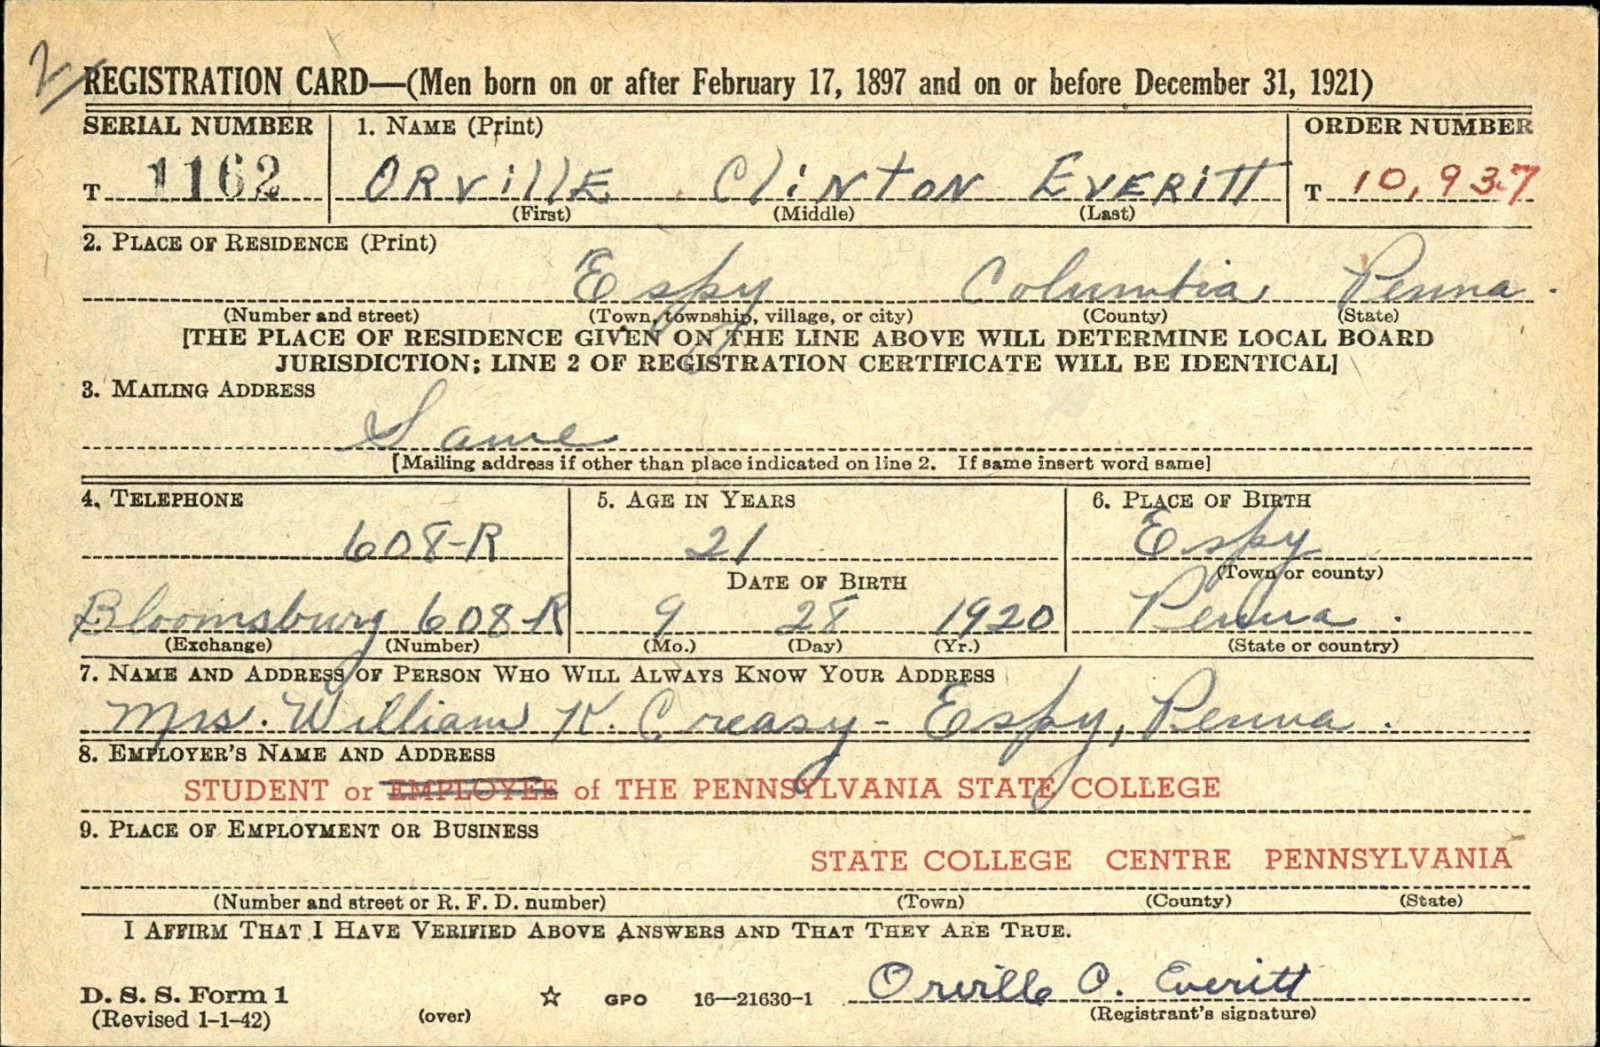 2
REGISTRATION CARD—(Men born on or after February 17, 1897 and on or before December 31, 1921)
SERIAL NUMBER 1. NAME (Print) ORDER NUMBER
T 1162 ORVillE ClINTON EVERITT T 10,937
(First) (Middle) (Last)
2. PLACE OF RESIDENCE (Print)
Espy Columbia Penna.
(Number and street) (Town, township, village, or city) (County) (State)
[THE PLACE OF RESIDENCE GIVEN ON THE LINE ABOVE WILL DETERMINE LOCAL BOARD
JURISDICTION; LINE 2 OF REGISTRATION CERTIFICATE WILL BE IDENTICAL]
3. MAILING ADDRESS
Same
[Mailing address if other than place indicated on line 2. If same insert word same]
4. TELEPHONE 5. AGE IN YEARS 6. PLACE OF BIRTH
608-R 21 Espy
DATE OF BIRTH (Town or county)
Bloomsburg 608-R 9 28 1920 Penna.
(Exchange) (Number) (Mo.) (Day) (Yr.) (State or country)
7. NAME AND ADDRESS OF PERSON WHO WILL ALWAYS KNOW YOUR ADDRESS
Mrs. William K. Creasy - Espy, Penna.
8. EMPLOYER'S NAME AND ADDRESS
STUDENT or EMPLOYEE of THE PENNSYLVANIA STATE COLLEGE
9. PLACE OF EMPLOYMENT OR BUSINESS
STATE COLLEGE CENTRE PENNSYLVANIA
(Number and street or R. F. D. number) (Town) (County) (State)
I AFFIRM THAT I HAVE VERIFIED ABOVE ANSWERS AND THAT THEY ARE TRUE.
D. S. S. Form 1
(Revised 1-1-42) (over) ☆ GPO 16—21630-1 Orville C. Everitt
(Registrant's signature)